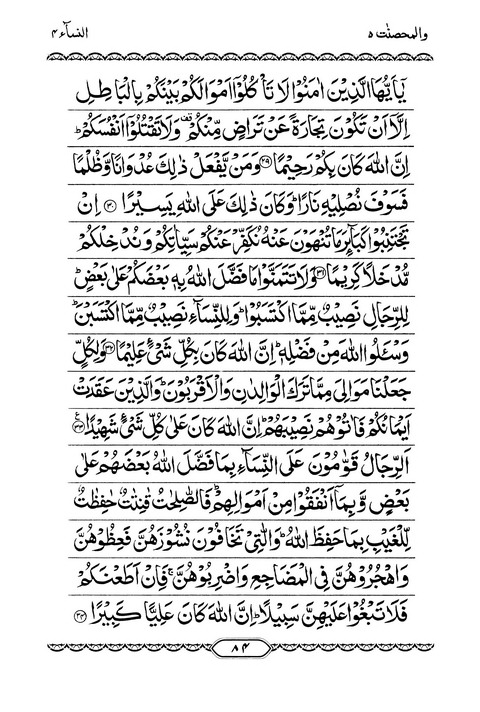 والمحصنٰت ۵
النسآء ۴
يٰۤاَيُّهَا الَّذِيْنَ اٰمَنُوْا لَا تَاْكُلُوْۤا اَمْوَالَكُمْ بَيْنَكُمْ بِالْبَاطِلِ
اِلَّاۤ اَنْ تَكُوْنَ تِجَارَةً عَنْ تَرَاضٍ مِّنْكُمْ ۫ وَلَا تَقْتُلُوْۤا اَنْفُسَكُمْ ؕ
اِنَّ اللّٰهَ كَانَ بِكُمْ رَحِيْمًا ﴿۲۹﴾ وَمَنْ يَّفْعَلْ ذٰلِكَ عُدْوَانًا وَّظُلْمًا
فَسَوْفَ نُصْلِيْهِ نَارًا ؕ وَكَانَ ذٰلِكَ عَلَى اللّٰهِ يَسِيْرًا ﴿۳۰﴾ اِنْ
تَجْتَنِبُوْا كَبَآئِرَ مَا تُنْهَوْنَ عَنْهُ نُكَفِّرْ عَنْكُمْ سَيِّاٰتِكُمْ وَنُدْخِلْكُمْ
مُّدْخَلًا كَرِيْمًا ﴿۳۱﴾ وَلَا تَتَمَنَّوْا مَا فَضَّلَ اللّٰهُ بِهٖ بَعْضَكُمْ عَلٰى بَعْضٍ ؕ
لِلرِّجَالِ نَصِيْبٌ مِّمَّا اكْتَسَبُوْا ؕ وَلِلنِّسَآءِ نَصِيْبٌ مِّمَّا اكْتَسَبْنَ ؕ
وَسْـَٔلُوا اللّٰهَ مِنْ فَضْلِهٖ ؕ اِنَّ اللّٰهَ كَانَ بِكُلِّ شَيْءٍ عَلِيْمًا ﴿۳۲﴾ وَلِكُلٍّ
جَعَلْنَا مَوَالِيَ مِمَّا تَرَكَ الْوَالِدٰنِ وَالْاَقْرَبُوْنَ ؕ وَالَّذِيْنَ عَقَدَتْ
اَيْمَانُكُمْ فَاٰتُوْهُمْ نَصِيْبَهُمْ ؕ اِنَّ اللّٰهَ كَانَ عَلٰى كُلِّ شَيْءٍ شَهِيْدًا ﴿۳۳﴾ ع
اَلرِّجَالُ قَوّٰمُوْنَ عَلَى النِّسَآءِ بِمَا فَضَّلَ اللّٰهُ بَعْضَهُمْ عَلٰى
بَعْضٍ وَّبِمَاۤ اَنْفَقُوْا مِنْ اَمْوَالِهِمْ ؕ فَالصّٰلِحٰتُ قٰنِتٰتٌ حٰفِظٰتٌ
لِّلْغَيْبِ بِمَا حَفِظَ اللّٰهُ ؕ وَالّٰتِيْ تَخَافُوْنَ نُشُوْزَهُنَّ فَعِظُوْهُنَّ
وَاهْجُرُوْهُنَّ فِي الْمَضَاجِعِ وَاضْرِبُوْهُنَّ ۚ فَاِنْ اَطَعْنَكُمْ
فَلَا تَبْغُوْا عَلَيْهِنَّ سَبِيْلًا ؕ اِنَّ اللّٰهَ كَانَ عَلِيًّا كَبِيْرًا ﴿۳۴﴾
۸۴